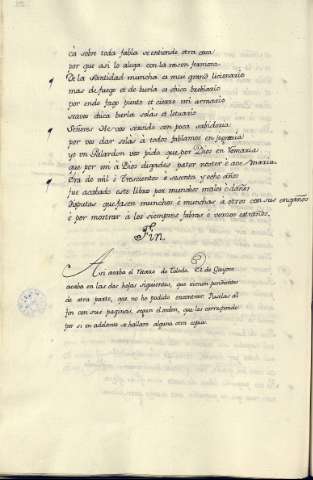 ca sobre toda fabla se entiende otra cosa
por que asi lo alega con la rason fermosa
De la Santidad muncha es muy grand licionario
mas de fuego et de burla es chico breviario
por ende fago punto et cierro mi armario
seavos chica burla solas et letuario
Señores He vos servido con poca sabidoria
por vos dar solas à todos fablamos en juglaria
yo un gilardon vos pido que por Dios en Romaria
que por mi à Dios digades pater noster è ave maria
Era de mil è Trescientos è sesenta y ocho años
fue acabado este libro por munchos males è daños
que fasen munchos è munchas à otros con sus engaños
è por mostrar à los siempres fabras è versos estraños.
Fin.
Asi acaba el Fecena de Toledo. El de Gayoso
acaba en las dos hojas siguientes, que vienen
de otra parte, que no he podido encontrar. Puselas al
fin con sus paginas, segun el orden, que les corresponde
por si en adelante se hallare alguna otra copia.